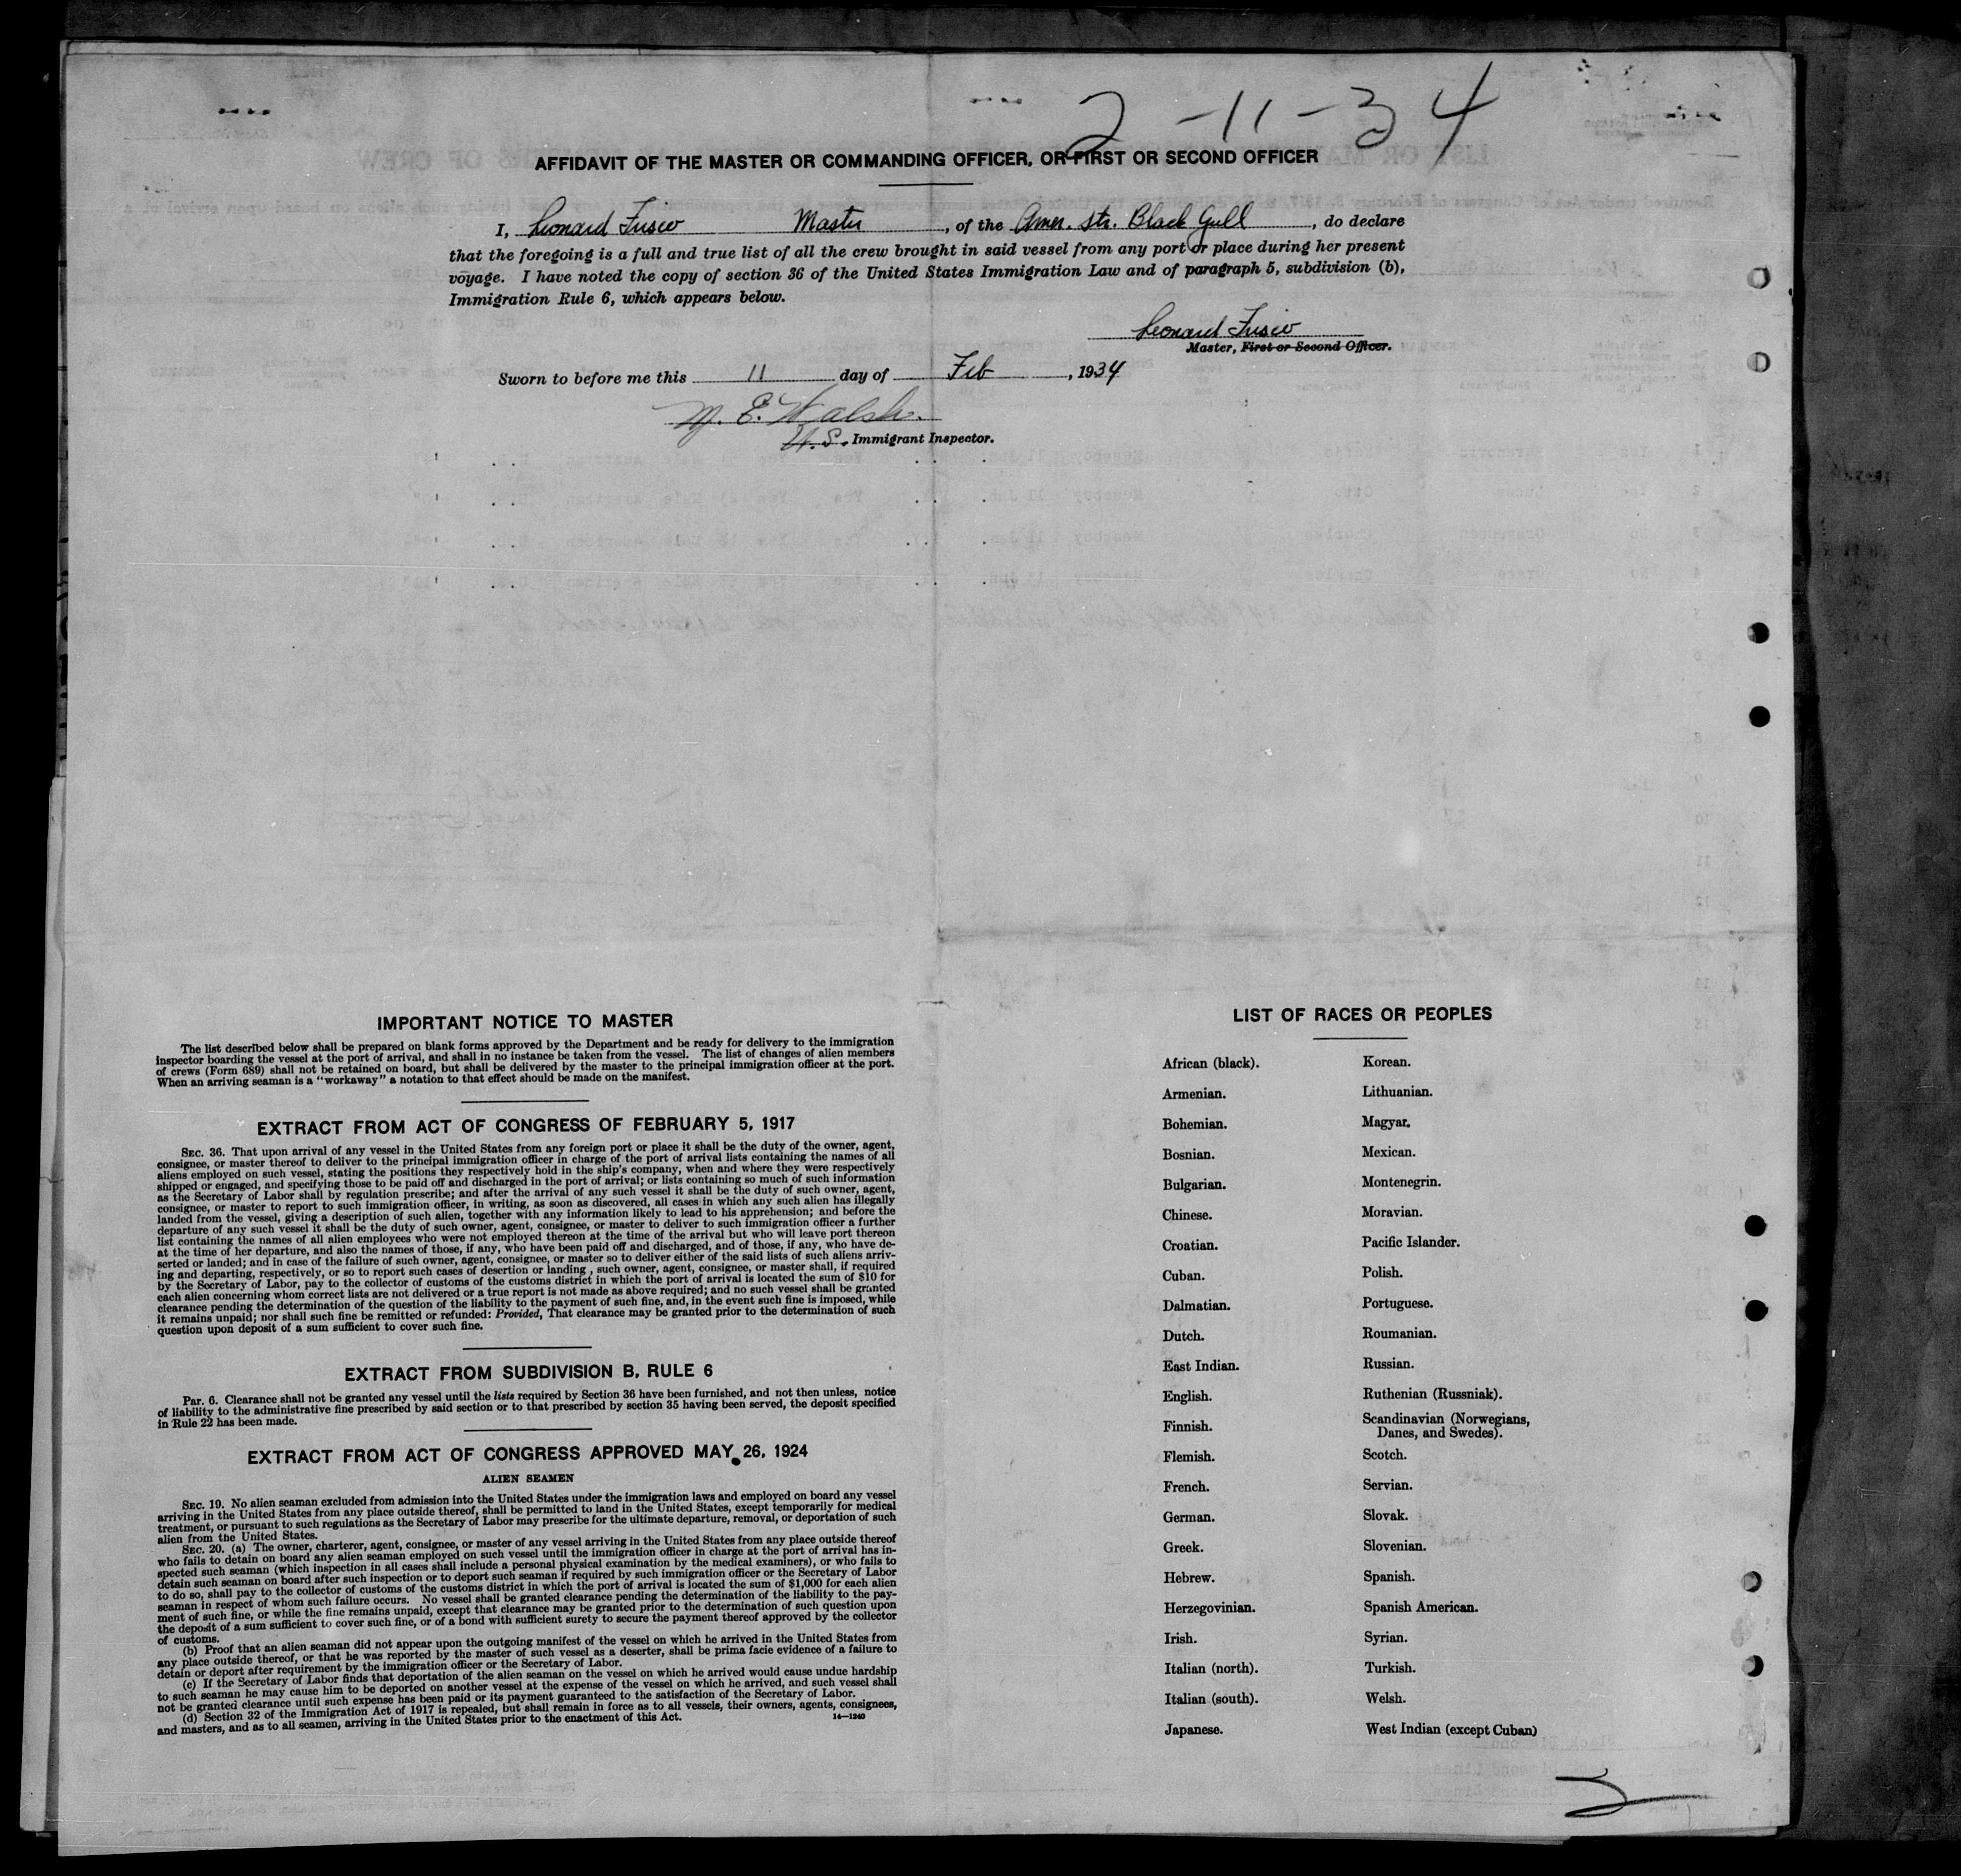 2-11-34
AFFIDAVIT OF THE MASTER OR COMMANDING OFFICER, OR FIRST OR SECOND OFFICER
I, Leonard Fusco Master, of the Amer. Str. Black Gull, do declare
that the foregoing is a full and true list of all the crew brought in said vessel from any port or place during her present
voyage. I have noted the copy of section 36 of the United States Immigration Law and of paragraph 5, subdivision (b),
Immigration Rule 6, which appears below.
Leonard Fusco
Master, First or Second Officer.
Sworn to before me this 11 day of Feb, 1934
M. E. Walsh.
U.S. Immigrant Inspector.
IMPORTANT NOTICE TO MASTER
The list described below shall be prepared on blank forms approved by the Department and be ready for delivery to the immigration
inspector boarding the vessel at the port of arrival, and shall in no instance be taken from the vessel. The list of changes of alien members
of crews (Form 689) shall not be retained on board, but shall be delivered by the master to the principal immigration officer at the port.
When an arriving seaman is a "workaway" a notation to that effect should be made on the manifest.
EXTRACT FROM ACT OF CONGRESS OF FEBRUARY 5, 1917
SEC. 36. That upon arrival of any vessel in the United States from any foreign port or place it shall be the duty of the owner, agent,
consignee, or master thereof to deliver to the principal immigration officer in charge of the port of arrival lists containing the names of all
aliens employed on such vessel, stating the positions they respectively hold in the ship's company, when and where they were respectively
shipped or engaged, and specifying those to be paid off and discharged in the port of arrival; or lists containing so much of such information
as the Secretary of Labor shall by regulation prescribe; and after the arrival of any such vessel it shall be the duty of such owner, agent,
consignee, or master to report to such immigration officer, in writing, as soon as discovered, all cases in which any such alien has illegally
landed from the vessel, giving a description of such alien, together with any information likely to lead to his apprehension; and before the
departure of any such vessel it shall be the duty of such owner, agent, consignee, or master to deliver to such immigration officer a further
list containing the names of all alien employees who were not employed thereon at the time of the arrival but who will leave port thereon
at the time of her departure, and also the names of those, if any, who have been paid off and discharged, and of those, if any, who have de-
serted or landed; and in case of the failure of such owner, agent, consignee, or master so to deliver either of the said lists of such aliens arriv-
ing and departing, respectively, or so to report such cases of desertion or landing, such owner, agent, consignee, or master shall, if required
by the Secretary of Labor, pay to the collector of customs of the customs district in which the port of arrival is located the sum of $10 for
each alien concerning whom correct lists are not delivered or a true report is not made as above required; and no such vessel shall be granted
clearance pending the determination of the question of the liability to the payment of such fine, and, in the event such fine is imposed, while
it remains unpaid; nor shall such fine be remitted or refunded: Provided, That clearance may be granted prior to the determination of such
question upon deposit of a sum sufficient to cover such fine.
EXTRACT FROM SUBDIVISION B, RULE 6
Par. 6. Clearance shall not be granted any vessel until the lists required by Section 36 have been furnished, and not then unless, notice
of liability to the administrative fine prescribed by said section or to that prescribed by section 35 having been served, the deposit specified
in Rule 22 has been made.
EXTRACT FROM ACT OF CONGRESS APPROVED MAY 26, 1924
ALIEN SEAMEN
SEC. 19. No alien seaman excluded from admission into the United States under the immigration laws and employed on board any vessel
arriving in the United States from any place outside thereof, shall be permitted to land in the United States, except temporarily for medical
treatment, or pursuant to such regulations as the Secretary of Labor may prescribe for the ultimate departure, removal, or deportation of such
alien from the United States.
SEC. 20. (a) The owner, charterer, agent, consignee, or master of any vessel arriving in the United States from any place outside thereof
who fails to detain on board any alien seaman employed on such vessel until the immigration officer in charge at the port of arrival has in-
spected such seaman (which inspection in all cases shall include a personal physical examination by the medical examiners), or who fails to
detain such seaman on board after such inspection or to deport such seaman if required by such immigration officer or the Secretary of Labor
to do so, shall pay to the collector of customs of the customs district in which the port of arrival is located the sum of $1,000 for each alien
seaman in respect of whom such failure occurs. No vessel shall be granted clearance pending the determination of the liability to the pay-
ment of such fine, or while the fine remains unpaid, except that clearance may be granted prior to the determination of such question upon
the deposit of a sum sufficient to cover such fine, or of a bond with sufficient surety to secure the payment thereof approved by the collector
of customs.
(b) Proof that an alien seaman did not appear upon the outgoing manifest of the vessel on which he arrived in the United States from
any place outside thereof, or that he was reported by the master of such vessel as a deserter, shall be prima facie evidence of a failure to
detain or deport after requirement by the immigration officer or the Secretary of Labor.
(c) If the Secretary of Labor finds that deportation of the alien seaman on the vessel on which he arrived would cause undue hardship
to such seaman he may cause him to be deported on another vessel at the expense of the vessel on which he arrived, and such vessel shall
not be granted clearance until such expense has been paid or its payment guaranteed to the satisfaction of the Secretary of Labor.
(d) Section 32 of the Immigration Act of 1917 is repealed, but shall remain in force as to all vessels, their owners, agents, consignees,
and masters, and as to all seamen, arriving in the United States prior to the enactment of this Act. 14—1240
LIST OF RACES OR PEOPLES
African (black).
Armenian.
Bohemian.
Bosnian.
Bulgarian.
Chinese.
Croatian.
Cuban.
Dalmatian.
Dutch.
East Indian.
English.
Finnish.
Flemish.
French.
German.
Greek.
Hebrew.
Herzegovinian.
Irish.
Italian (north).
Italian (south).
Japanese.
Korean.
Lithuanian.
Magyar.
Mexican.
Montenegrin.
Moravian.
Pacific Islander.
Polish.
Portuguese.
Roumanian.
Russian.
Ruthenian (Russniak).
Scandinavian (Norwegians,
Danes, and Swedes).
Scotch.
Servian.
Slovak.
Slovenian.
Spanish.
Spanish American.
Syrian.
Turkish.
Welsh.
West Indian (except Cuban)